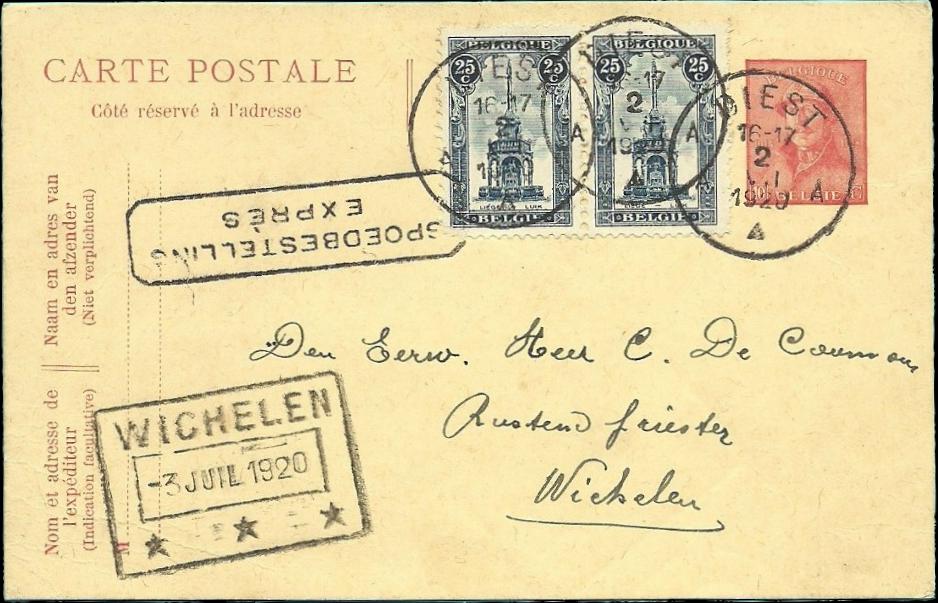 CARTE POSTALE
Côté réservé à l'adresse
BELGIQUE
25 25
C C
LIÉGE LUIK
BELGIË
BELGIQUE
25 25
C C
BELGIË
BELGIQUE
BELGIË
DIEST
16-17
2
1920
A A
A
SPOEDBESTELLING
EXPRÈS
Naam en adres van
den afzender
(Niet verplichtend)
Nom et adresse de
l'expéditeur
(Indication facultative)
M
Den Eerw. Heer C. De
Rustend priester
Wichelen
WICHELEN
-3 JUIL 1920